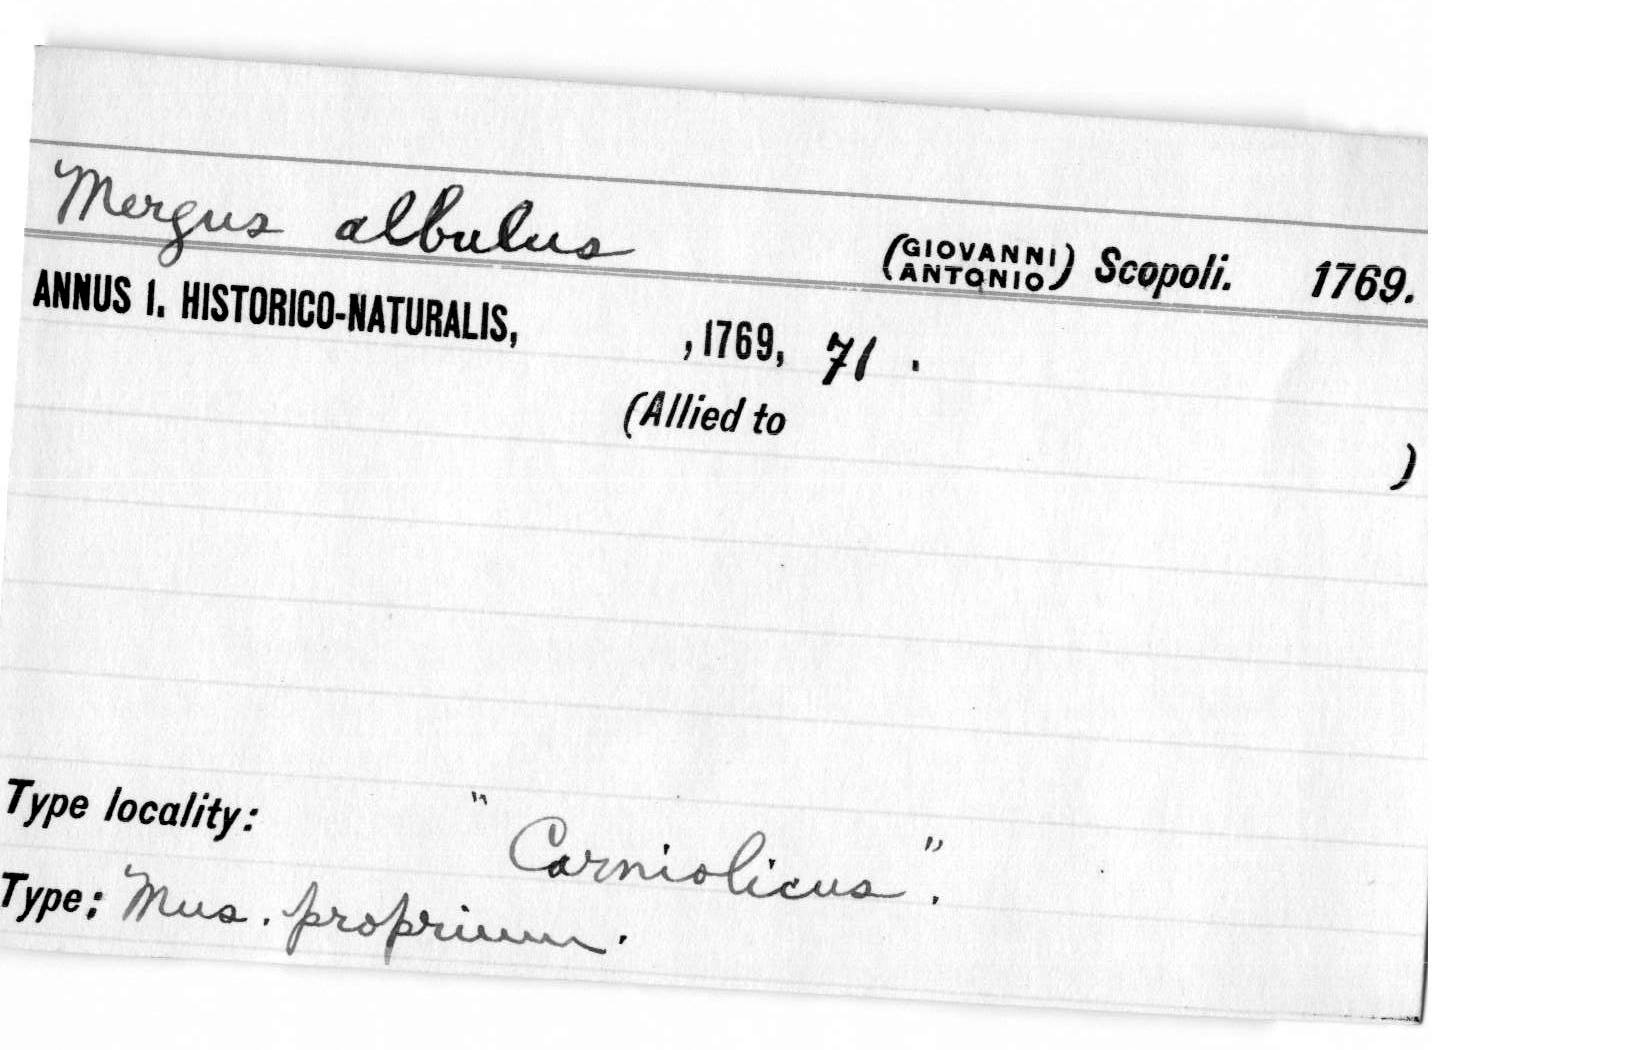 Mergus albulus (GIOVANNI ANTONIO) Scopoli. 1769.
ANNUS I. HISTORICO-NATURALIS, , 1769, 71 .
(Allied to )
Type locality: "Carniolicus".
Type: Mus. proprium.